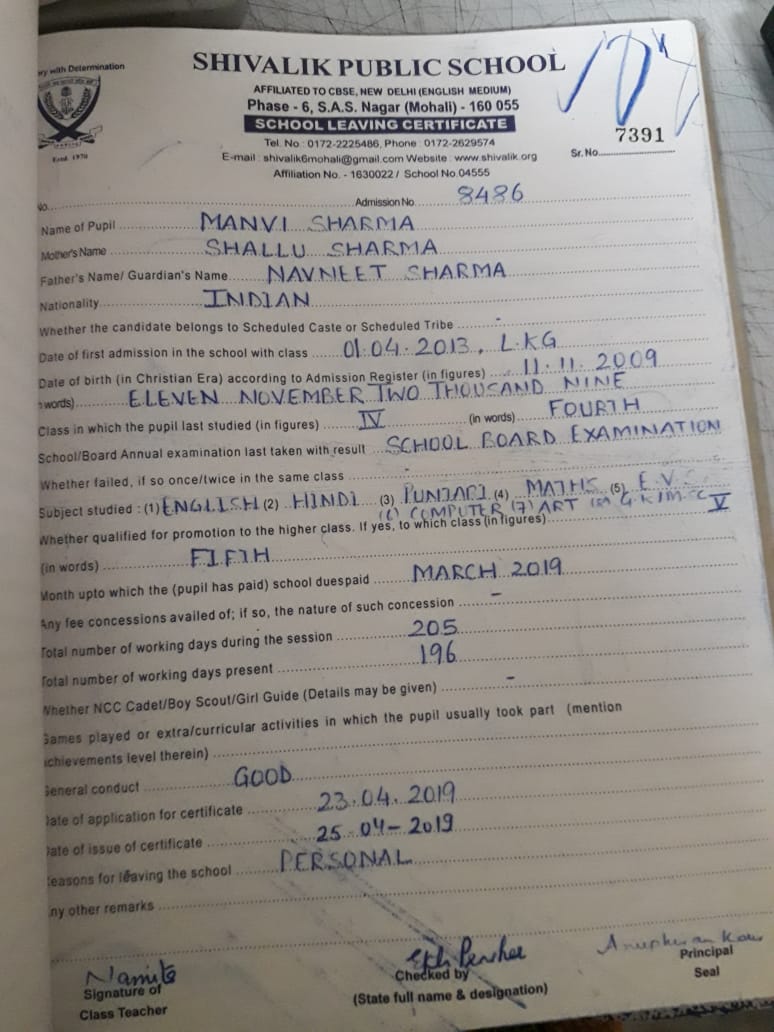 ry with Determination
SHIVALIK PUBLIC SCHOOL
AFFILIATED TO CBSE, NEW DELHI (ENGLISH MEDIUM)
Phase - 6, S.A.S. Nagar (Mohali) - 160 055
SCHOOL LEAVING CERTIFICATE
Estd. 1970
Tel. No : 0172-2225486, Phone : 0172-2629574
E-mail : shivalik6mohali@gmail.com Website : www.shivalik.org
Sr. No. 7391
Affiliation No. - 1630022 / School No.04555
No. Admission No. 8486
Name of Pupil MANVI SHARMA
Mother's Name SHALLU SHARMA
Father's Name/ Guardian's Name NAVNEET SHARMA
Nationality INDIAN
Whether the candidate belongs to Scheduled Caste or Scheduled Tribe -
Date of first admission in the school with class 01.04.2013, L.KG
Date of birth (in Christian Era) according to Admission Register (in figures) 11.11.2009
n words) ELEVEN NOVEMBER TWO THOUSAND NINE
Class in which the pupil last studied (in figures) IV (in words) FOURTH
School/Board Annual examination last taken with result SCHOOL BOARD EXAMINATION
Whether failed, if so once/twice in the same class -
Subject studied : (1) ENGLISH (2) HINDI (3) PUNJABI (4) MATHS (5) E.V.S
(6) COMPUTER (7) ART
Whether qualified for promotion to the higher class. If yes, to which class (in figures) V
(in words) FIFTH
Month upto which the (pupil has paid) school duespaid MARCH 2019
Any fee concessions availed of; if so, the nature of such concession -
Total number of working days during the session 205
Total number of working days present 196
Whether NCC Cadet/Boy Scout/Girl Guide (Details may be given) -
Games played or extra/curricular activities in which the pupil usually took part (mention
achievements level therein)
General conduct GOOD
Date of application for certificate 23.04.2019
Date of issue of certificate 25.04-2019
Reasons for leaving the school PERSONAL
ny other remarks
Namita
Signature of
Class Teacher
Checked by
(State full name & designation)
Principal
Seal